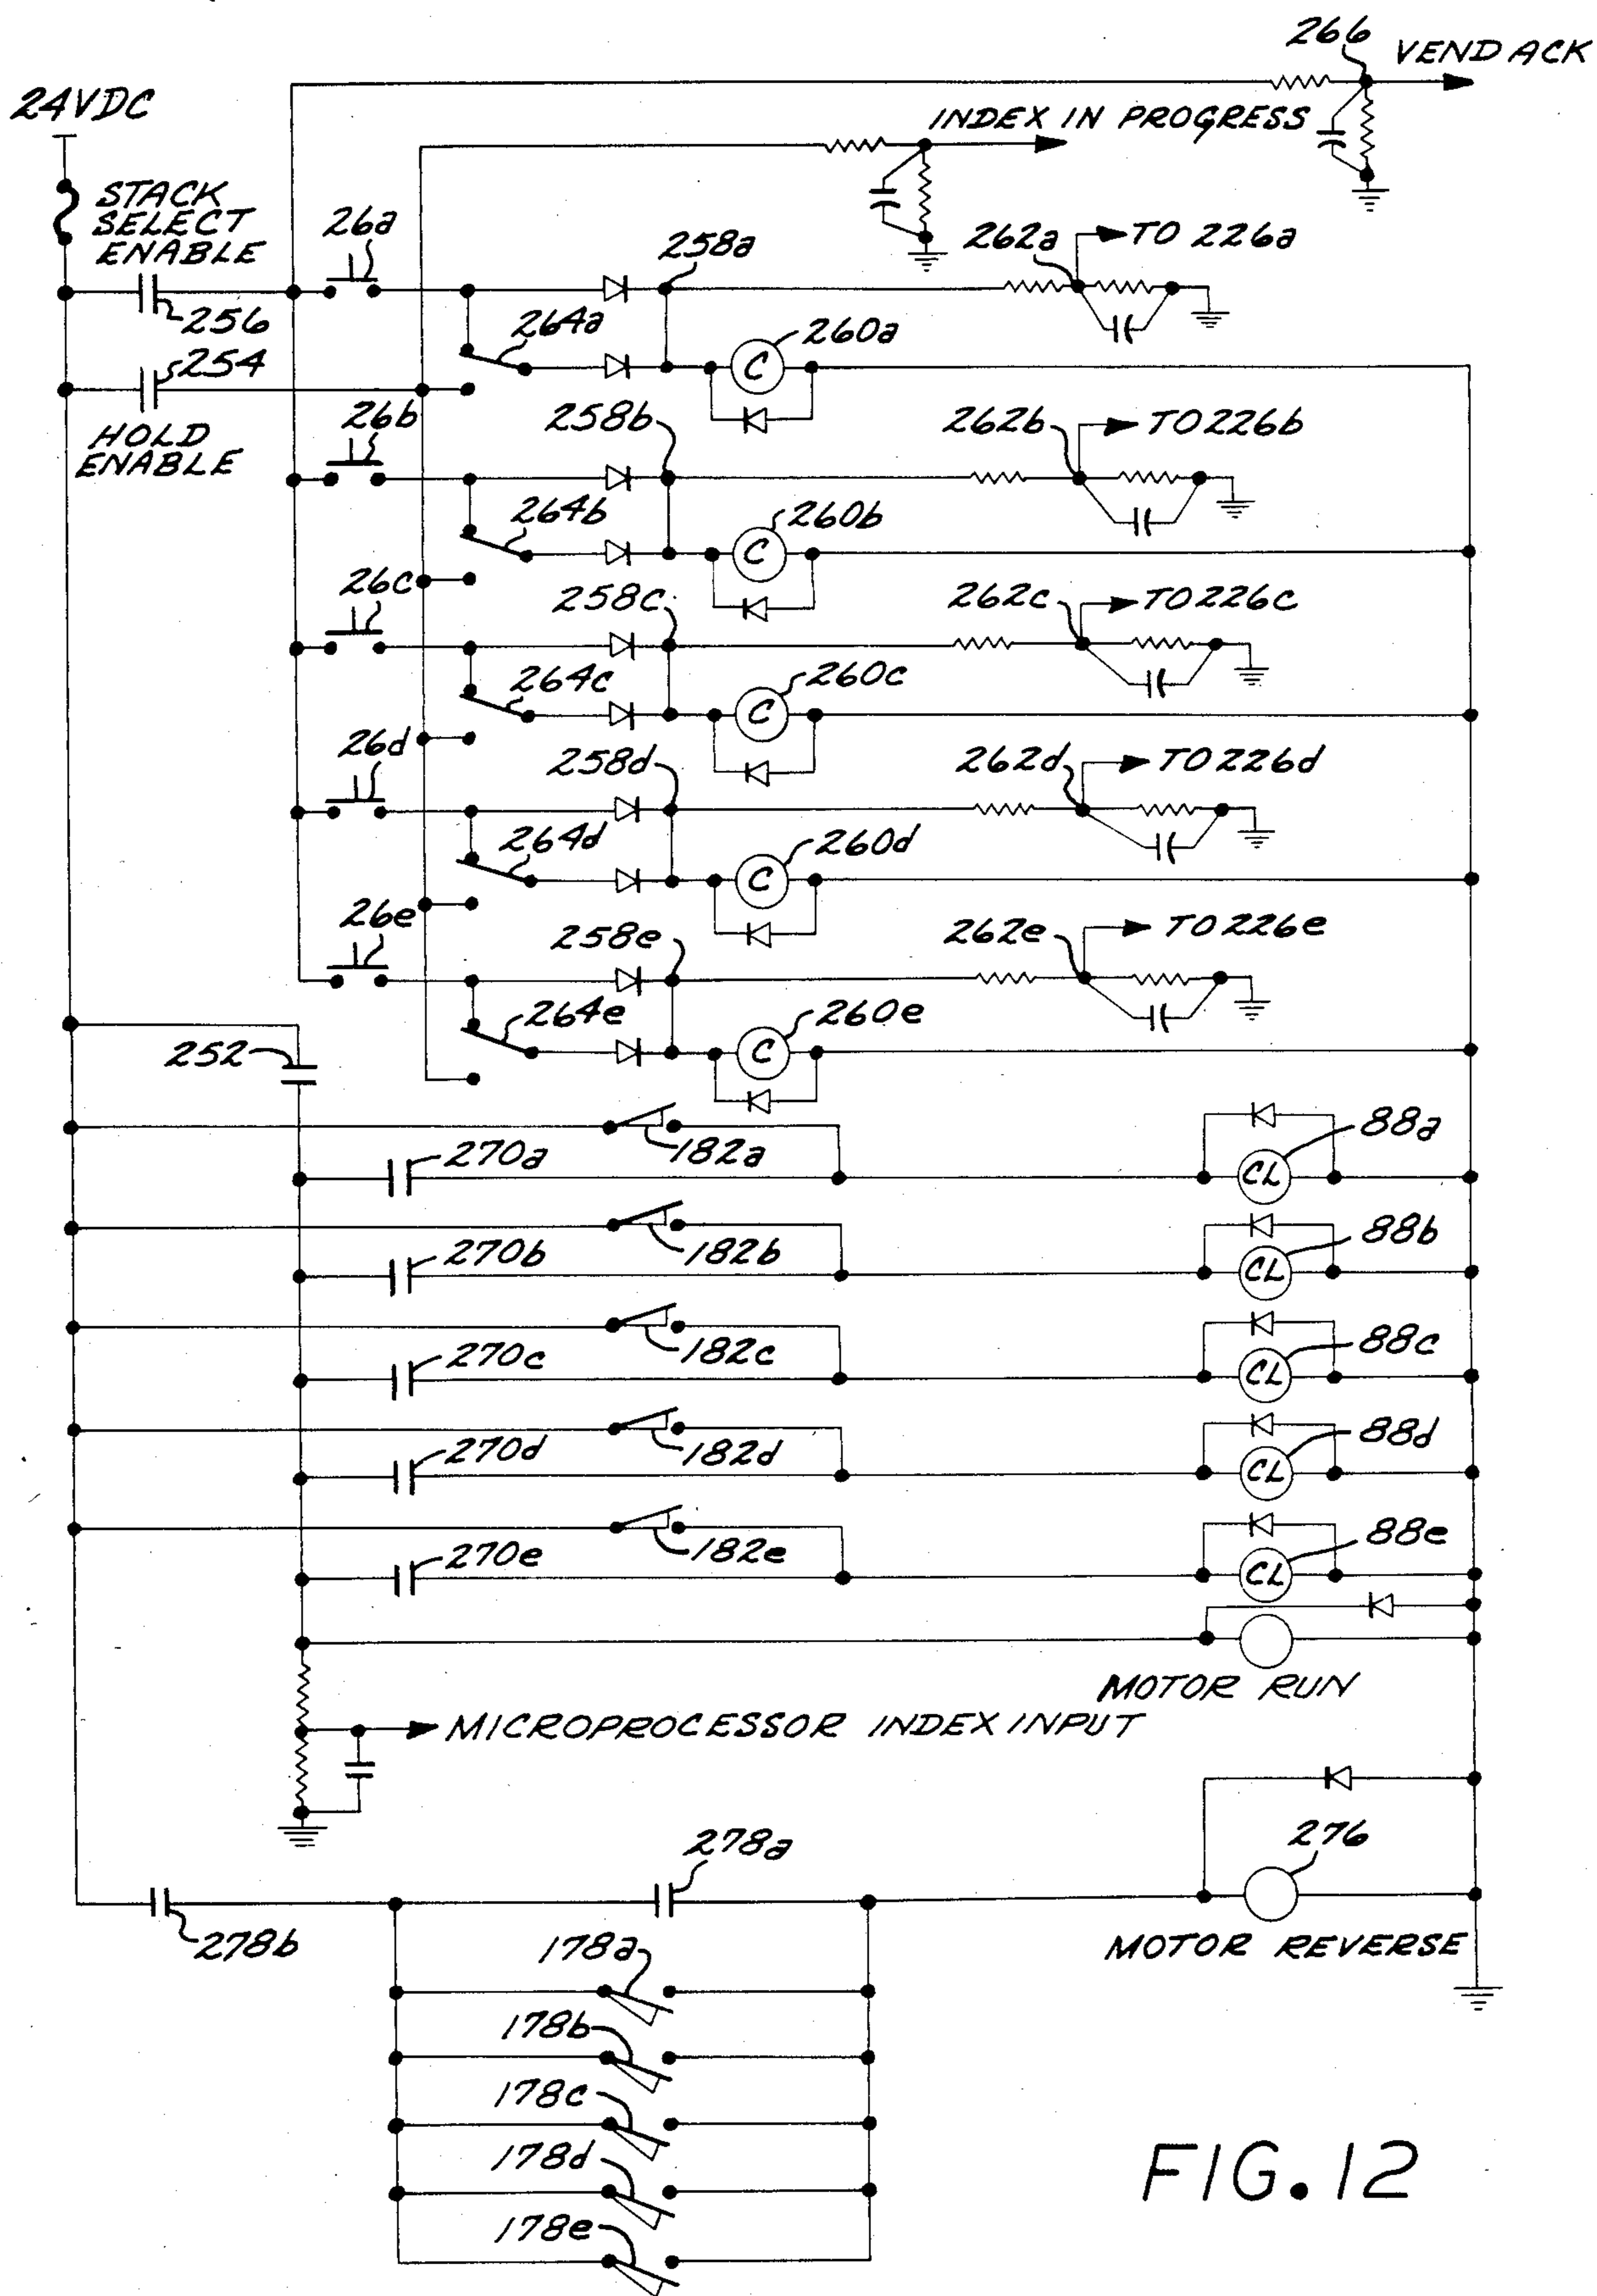 266
VEND ACK
24VDC
INDEX IN PROGRESS
STACK
SELECT
ENABLE
26a
258a
262a
TO 226a
256
264a
260a
254
HOLD
ENABLE
26b
258b
262b
TO 226b
264b
260b
C
26c
258c
262c
TO 226c
264c
260c
C
26d
258d
262d
TO 226d
264d
260d
C
26e
258e
262e
TO 226e
264e
260e
C
C
252
182a
88a
270a
CL
182b
88b
270b
CL
182c
88c
270c
CL
182d
88d
270d
CL
182e
88e
270e
CL
MOTOR RUN
MICROPROCESSOR INDEX INPUT
278a
276
278b
MOTOR REVERSE
178a
178b
178c
178d
178e
FIG. 12